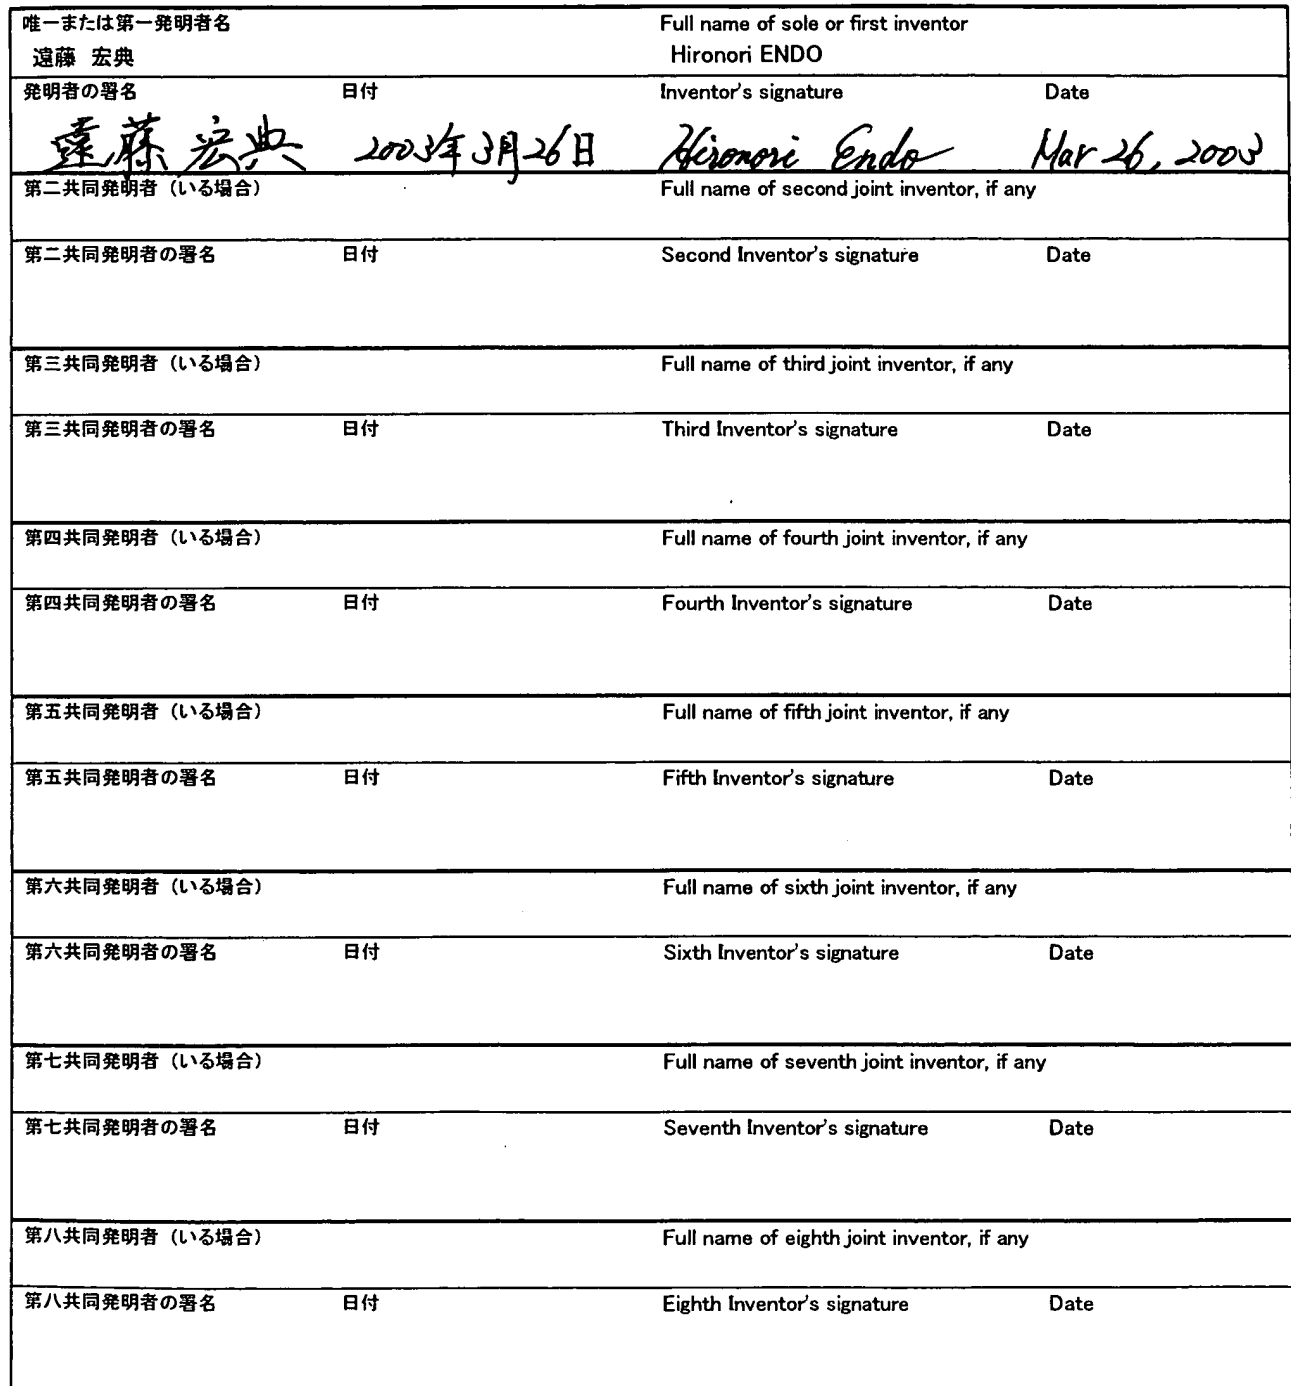 唯一または第一発明者名 Full name of sole or first inventor
遠藤 宏典 Hironori ENDO
発明者の署名 日付 Inventor's signature Date
遠藤 宏典 2003年3月26日 Hironori Endo Mar 26, 2003
第二共同発明者（いる場合） Full name of second joint inventor, if any
第二共同発明者の署名 日付 Second Inventor's signature Date
第三共同発明者（いる場合） Full name of third joint inventor, if any
第三共同発明者の署名 日付 Third Inventor's signature Date
第四共同発明者（いる場合） Full name of fourth joint inventor, if any
第四共同発明者の署名 日付 Fourth Inventor's signature Date
第五共同発明者（いる場合） Full name of fifth joint inventor, if any
第五共同発明者の署名 日付 Fifth Inventor's signature Date
第六共同発明者（いる場合） Full name of sixth joint inventor, if any
第六共同発明者の署名 日付 Sixth Inventor's signature Date
第七共同発明者（いる場合） Full name of seventh joint inventor, if any
第七共同発明者の署名 日付 Seventh Inventor's signature Date
第八共同発明者（いる場合） Full name of eighth joint inventor, if any
第八共同発明者の署名 日付 Eighth Inventor's signature Date